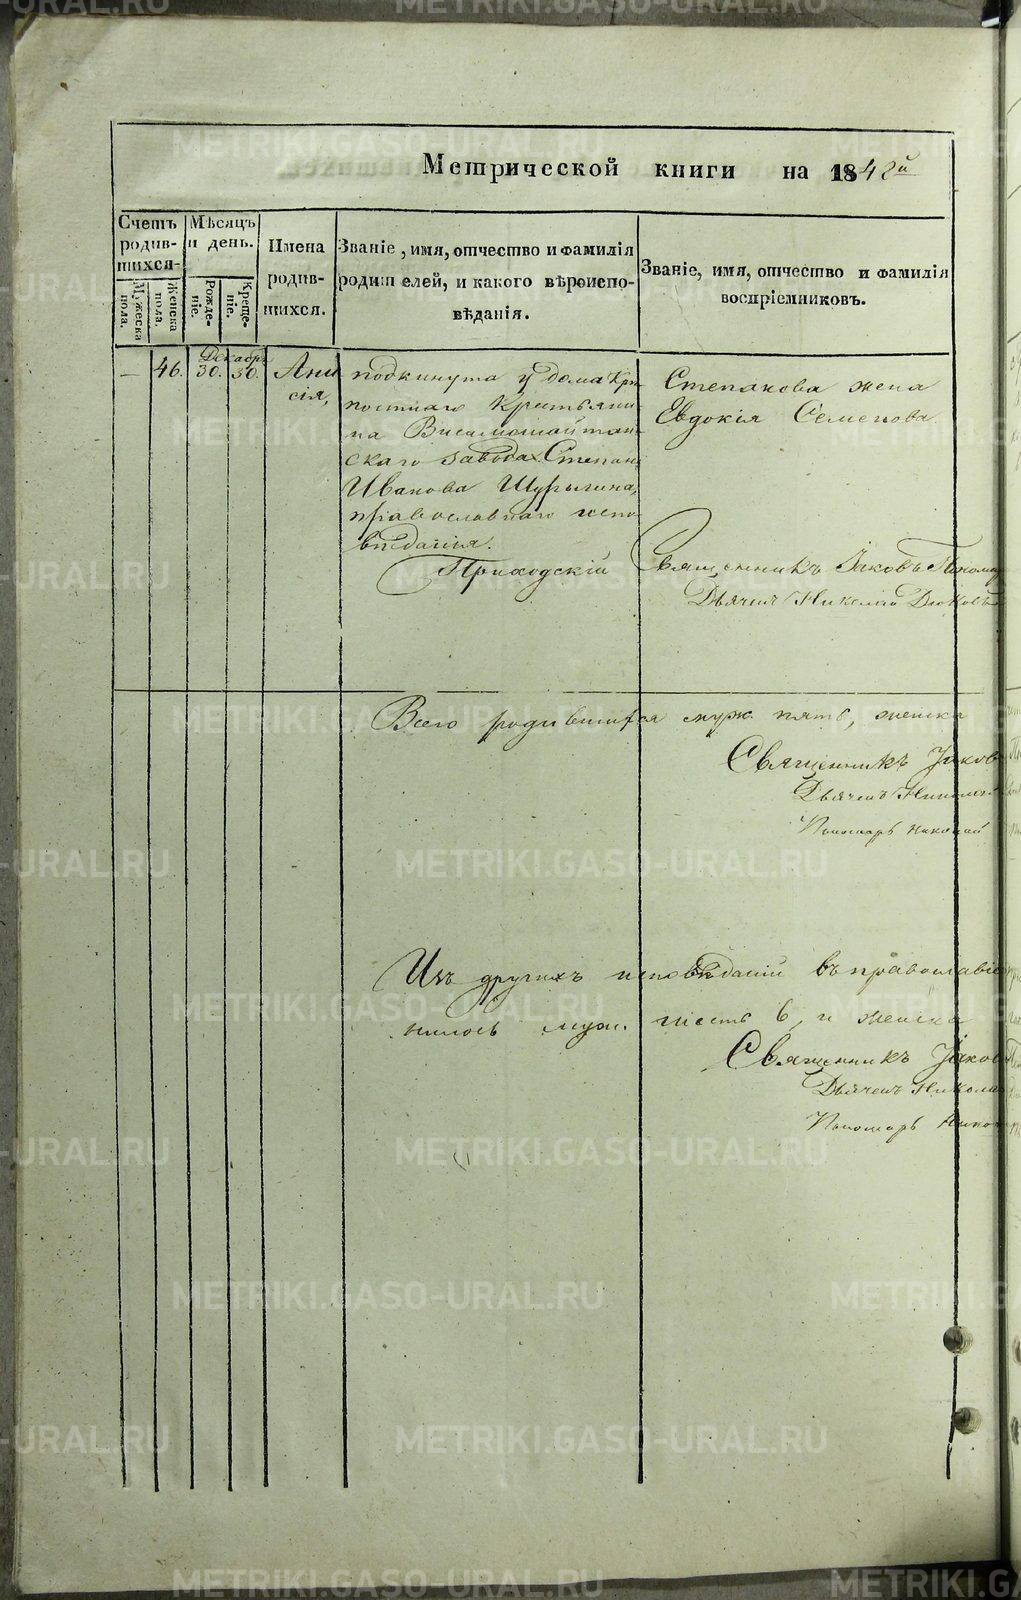 METRIKI.GASO-URAL.RU
Метрической книги на 1842й
Счетъ родив-шихся.
Мужеска пола.
Женска пола.
Мѣсяцъ и день.
Рожде-ніе.
Креще-ніе.
Имена родив-шихся.
Званіе, имя, отчество и фамилія
родителей, и какого вѣроиспо-
вѣданія.
Званіе, имя, отчество и фамилія
воспріемниковъ.
— 46. Декабр. 30. 30.
Ани
сія,
подкинута у дома Крѣ
постнаго Крестьяни
на Висимошайтан
скаго завода Степана
Иванова Шурыгина,
православнаго испо
вѣданія.
Степанова жена
Евдокія Семенова
Приходскій Священникъ Іаковъ Поном
Дьячекъ Николай Дюковъ
Всего родившихся муж. пять, женска
Священникъ Іаков
Дьячекъ Николай
Пономарь Николай
Изъ другихъ исповѣданій въ православіе
нилось муж. шесть 6, и женска
Священникъ Іаков
Дьячекъ Никола
Пономарь Никол